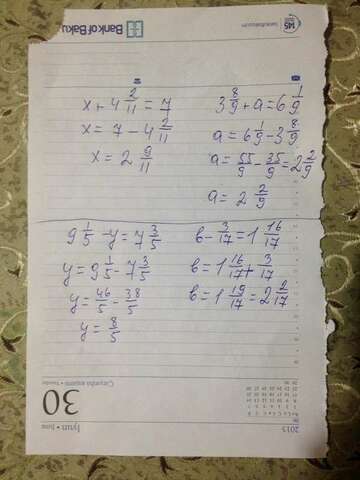 Bank of Baku
145
x + 4 2/11 = 7
x = 7 - 4 2/11
x = 2 9/11
3 8/9 + a = 6 1/9
a = 6 1/9 - 3 8/9
a = 55/9 - 35/9 = 2 2/9
a = 2 2/9
9 1/5 - y = 7 3/5
y = 9 1/5 - 7 3/5
y = 46/5 - 38/5
y = 8/5
в - 3/17 = 1 16/17
в = 1 16/17 + 3/17
в = 1 19/17 = 2 2/17
30
İyun • June
2013